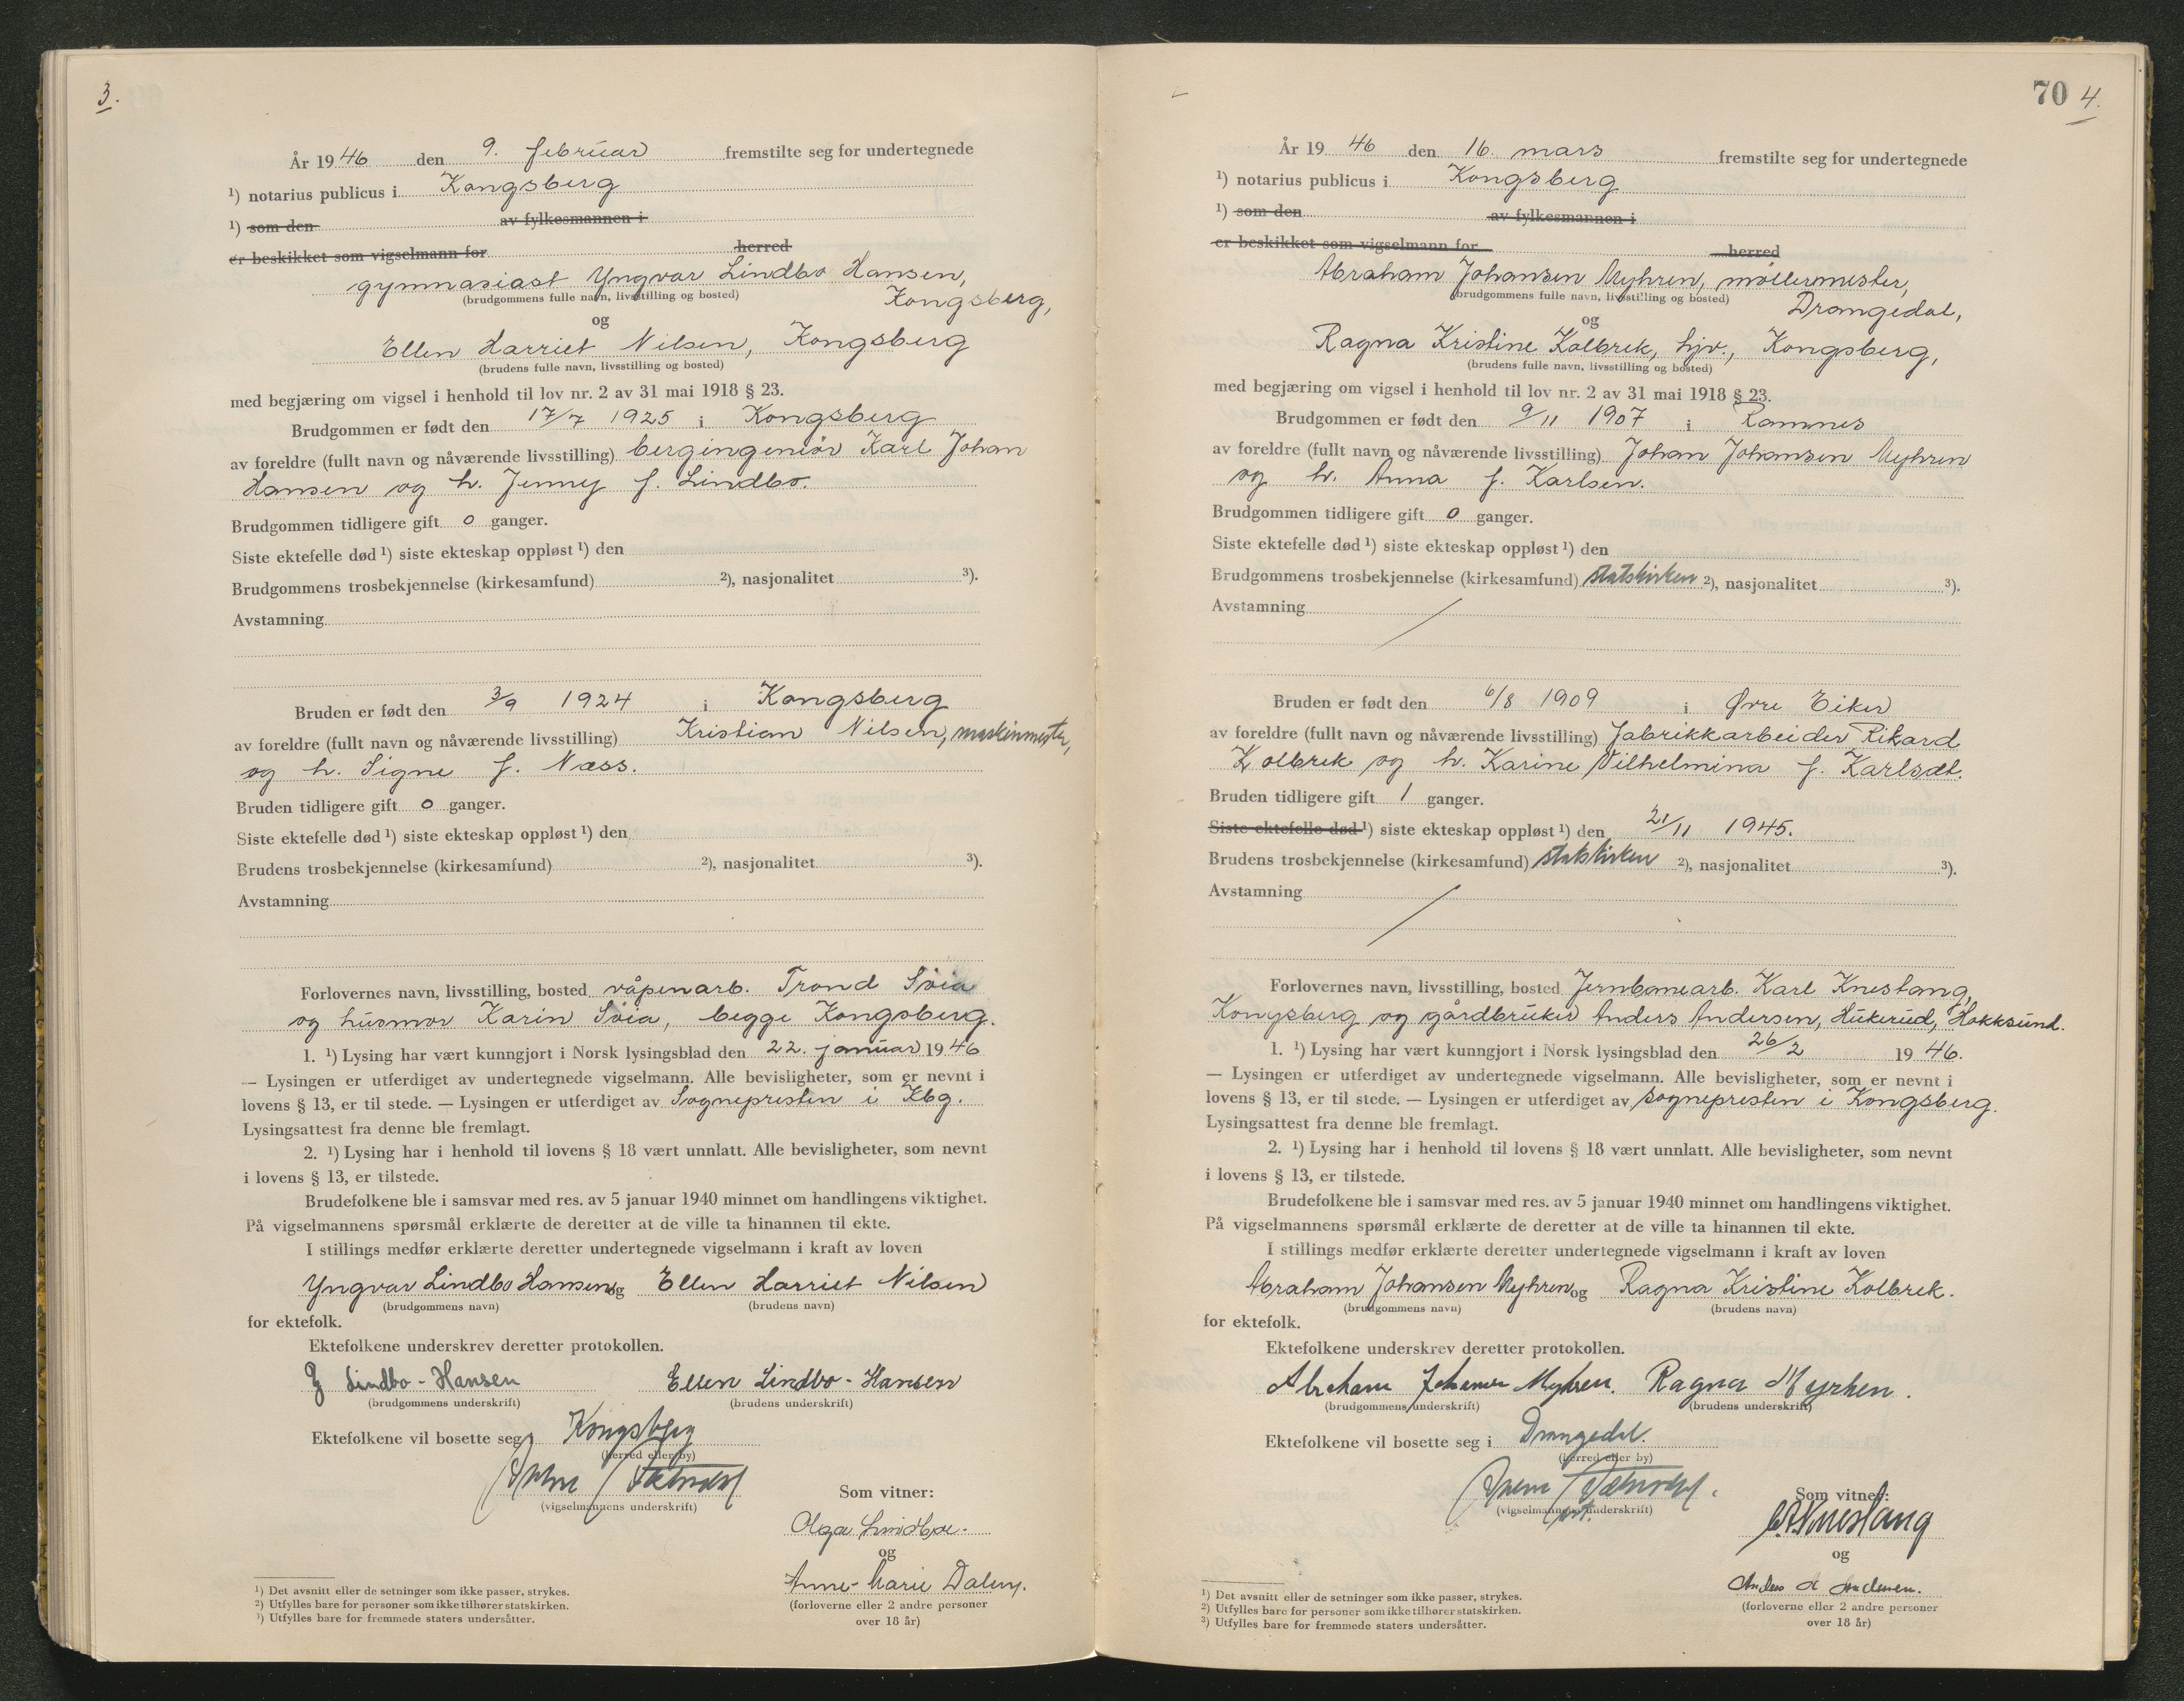 3.
År 1946 den 9. februar fremstilte seg for undertegnede
¹) notarius publicus i Kongsberg
¹) som den av fylkesmannen i
er beskikket som vigselmann for herred
gymnasiast Yngvar Lindbo Hansen,
(brudgommens fulle navn, livsstilling og bosted) Kongsberg,
og
Ellen Harriet Nilsen, Kongsberg
(brudens fulle navn, livsstilling og bosted)
med begjæring om vigsel i henhold til lov nr. 2 av 31 mai 1918 § 23.
Brudgommen er født den 17/7 1925 i Kongsberg
av foreldre (fullt navn og nåværende livsstilling) bergingeniør Karl Johan
Hansen og h. Jenny f. Lindbo.
Brudgommen tidligere gift 0 ganger.
Siste ektefelle død ¹) siste ekteskap oppløst ¹) den
Brudgommens trosbekjennelse (kirkesamfund) ²), nasjonalitet ³).
Avstamning
Bruden er født den 3/9 1924 i Kongsberg
av foreldre (fullt navn og nåværende livsstilling) Kristian Nilsen, maskinmester,
og h. Signe f. Næss.
Bruden tidligere gift 0 ganger.
Siste ektefelle død ¹) siste ekteskap oppløst ¹) den
Brudens trosbekjennelse (kirkesamfund) ²), nasjonalitet ³).
Avstamning
Forlovernes navn, livsstilling, bosted våpenarb. Trond Søia
og husmor Karin Søia, begge Kongsberg.
1. ¹) Lysing har vært kunngjort i Norsk lysingsblad den 22. januar 1946
— Lysingen er utferdiget av undertegnede vigselmann. Alle bevisligheter, som er nevnt i
lovens § 13, er til stede. — Lysingen er utferdiget av Sognepresten i Kbg.
Lysingsattest fra denne ble fremlagt.
2. ¹) Lysing har i henhold til lovens § 18 vært unnlatt. Alle bevisligheter, som nevnt
i lovens § 13, er tilstede.
Brudefolkene ble i samsvar med res. av 5 januar 1940 minnet om handlingens viktighet.
På vigselmannens spørsmål erklærte de deretter at de ville ta hinannen til ekte.
I stillings medfør erklærte deretter undertegnede vigselmann i kraft av loven
Yngvar Lindbo Hansen og Ellen Harriet Nilsen
(brudgommens navn) (brudens navn)
for ektefolk.
Ektefolkene underskrev deretter protokollen.
Y Lindbo-Hansen Ellen Lindbo-Hansen
(brudgommens underskrift) (brudens underskrift)
Ektefolkene vil bosette seg i Kongsberg
(herred eller by)
(vigselmannens underskrift)
Som vitner:
Olga Lindboe.
og
Anne-Marie
(forloverne eller 2 andre personer
over 18 år)
¹) Det avsnitt eller de setninger som ikke passer, strykes.
²) Utfylles bare for personer som ikke tilhører statskirken.
³) Utfylles bare for fremmede staters undersåtter.
70 4.
År 1946 den 16. mars fremstilte seg for undertegnede
¹) notarius publicus i Kongsberg
¹) som den av fylkesmannen i
er beskikket som vigselmann for herred
Abraham Johansen Myhren, møllermester,
(brudgommens fulle navn, livsstilling og bosted) Drangedal,
og
Ragna Kristine Kolbrek, hjv., Kongsberg,
(brudens fulle navn, livsstilling og bosted)
med begjæring om vigsel i henhold til lov nr. 2 av 31 mai 1918 § 23.
Brudgommen er født den 9/11 1907 i Ramnes
av foreldre (fullt navn og nåværende livsstilling) Johan Johansen Myhren
og h. Anna f. Karlsen.
Brudgommen tidligere gift 0 ganger.
Siste ektefelle død ¹) siste ekteskap oppløst ¹) den
Brudgommens trosbekjennelse (kirkesamfund) statskirken ²), nasjonalitet ³).
Avstamning
Bruden er født den 6/8 1909 i Øvre Eiker
av foreldre (fullt navn og nåværende livsstilling) fabrikkarbeider Rikard
Kolbrek og h. Karine Vilhelmina f. Karlsdt.
Bruden tidligere gift 1 ganger.
Siste ektefelle død ¹) siste ekteskap oppløst ¹) den 21/11 1945.
Brudens trosbekjennelse (kirkesamfund) statskirken ²), nasjonalitet ³).
Avstamning
Forlovernes navn, livsstilling, bosted Jernbanearb. Karl Knestang,
Kongsberg og gårdbruker Anders Andersen, Hukerud, Hokksund.
1. ¹) Lysing har vært kunngjort i Norsk lysingsblad den 26/2 1946.
— Lysingen er utferdiget av undertegnede vigselmann. Alle bevisligheter, som er nevnt i
lovens § 13, er til stede. — Lysingen er utferdiget av sognepresten i Kongsberg.
Lysingsattest fra denne ble fremlagt.
2. ¹) Lysing har i henhold til lovens § 18 vært unnlatt. Alle bevisligheter, som nevnt
i lovens § 13, er tilstede.
Brudefolkene ble i samsvar med res. av 5 januar 1940 minnet om handlingens viktighet.
På vigselmannens spørsmål erklærte de deretter at de ville ta hinannen til ekte.
I stillings medfør erklærte deretter undertegnede vigselmann i kraft av loven
Abraham Johansen Myhren og Ragna Kristine Kolbrek.
(brudgommens navn) (brudens navn)
for ektefolk.
Ektefolkene underskrev deretter protokollen.
Abraham Johansen Myhren. Ragna Myrhen.
(brudgommens underskrift) (brudens underskrift)
Ektefolkene vil bosette seg i Drangedal.
(herred eller by)
(vigselmannens underskrift)
Som vitner:
Knestang
og
Anders A Andersen.
(forloverne eller 2 andre personer
over 18 år)
¹) Det avsnitt eller de setninger som ikke passer, strykes.
²) Utfylles bare for personer som ikke tilhører statskirken.
³) Utfylles bare for fremmede staters undersåtter.